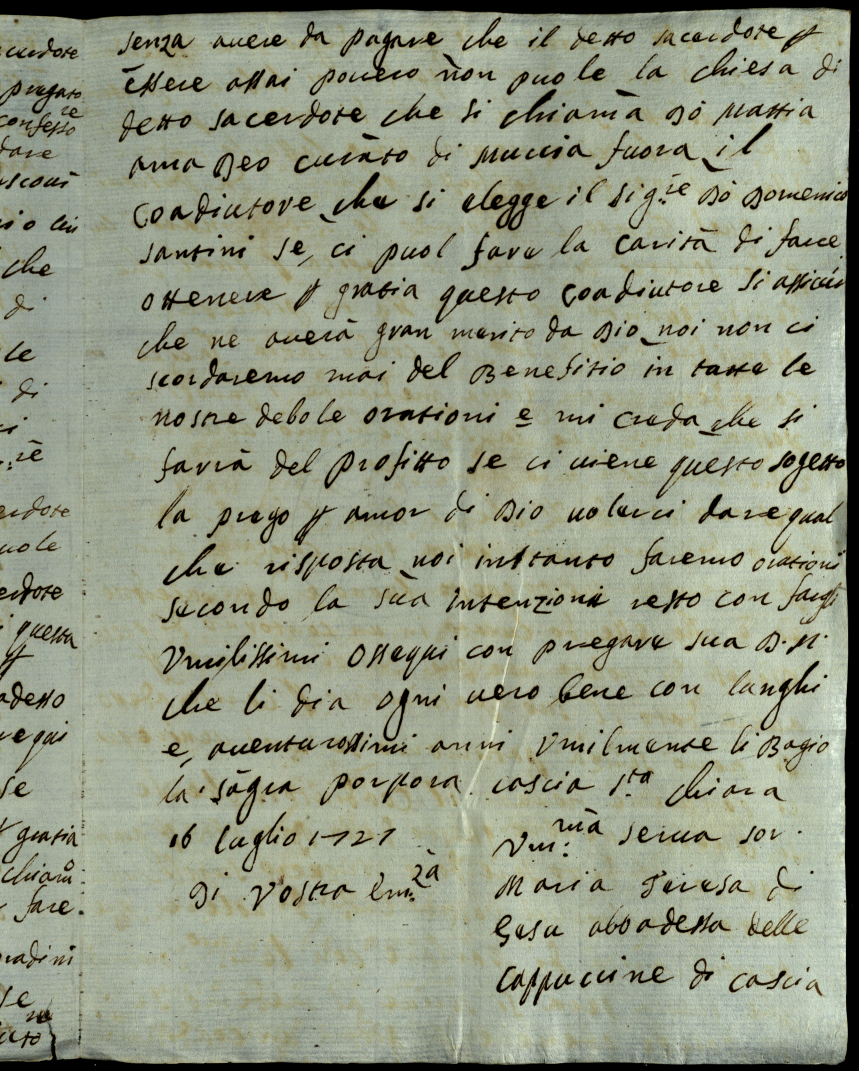 senza avere da pagare che il detto sacerdote p
essere assai povero non puole la chiesa di
detto sacerdote che si chiama Dò Mattia
ama Deo curato di Muccia fuora il
Coadiutore che si elegge il sig.re Dò Domenico
santini se, ci puol fare la carità di farce
ottenere p gratia questo Coadiutore si assicuri
che ne averà gran merito da Dio noi non ci
scordaremo mai del Benefitio in tutte le
nostre debole orationi e mi creda che si
farrà del profitto se ci viene questo sogetto
la prego p amor di Dio volerci dare qual
che risposta noi inttanto faremo orationi
secondo la sua intenzioni resto con fargli
Vmilissimi ossequi con pregare sua D. M.
che li dia ogni vero bene con lunghi
e, aventurossimi anni Vmilmente li Bagio
la sagra porpora cascia S.ta chiara
16 luglio 1727
Di Vostra Em.za
Vm.ma serva sor.
Maria Teresa di
Gesu abbadessa delle
Cappuccine di cascia
cerdote
pregato
confesso
dare
che
di
le
di
cerdote
vole
cerdote
questa
p
adesso
se
p gratia
fare.
se